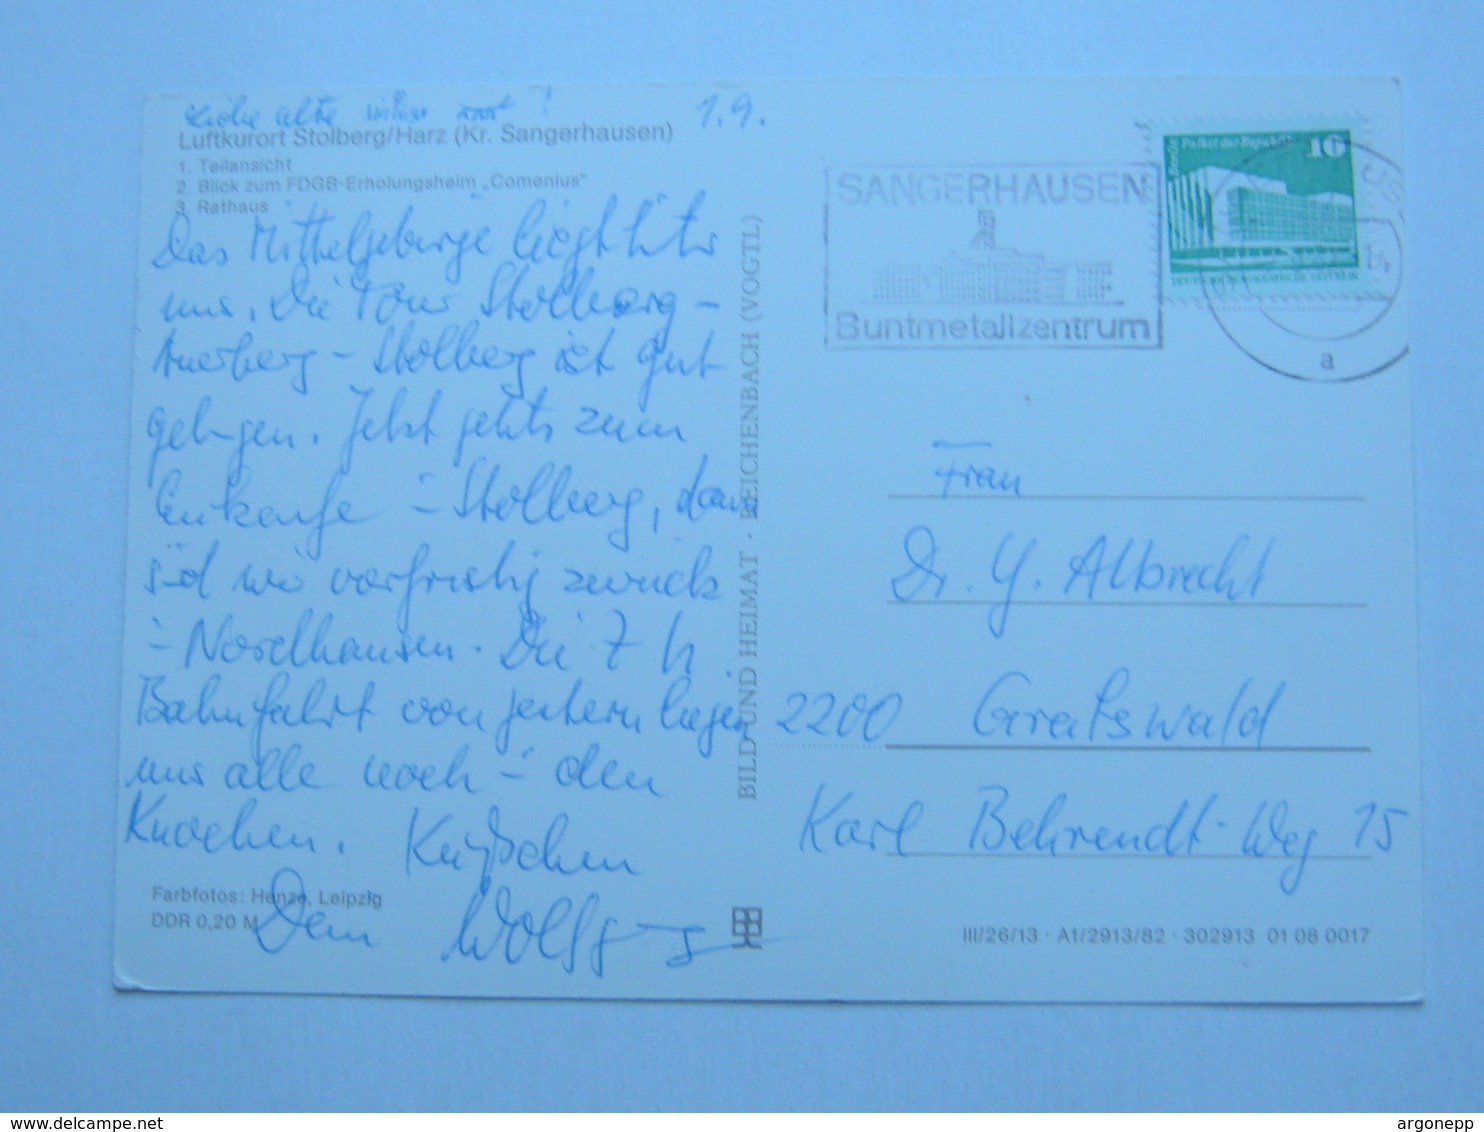 Liebe alte 1.9.
Luftkurort Stolberg/Harz (Kr. Sangerhausen)
1. Teilansicht
2. Blick zum FDGB-Erholungsheim „Comenius"
3. Rathaus
Das Mittelgebirge liegt hinter
uns. Die Tour Stolberg -
Auerberg - Stolberg ist gut
gelungen. Jetzt gehts zum
Einkaufe in Stolberg, dann
sind wir vorfristig zurück
in Nordhausen. Die 7 h
Bahnfahrt von gestern liegen
uns alle noch in den
Knochen. Küßchen
Dein Wolfgang
Farbfotos: Henze, Leipzig
DDR 0,20 M
BILD UND HEIMAT · REICHENBACH (VOGTL)
SANGERHAUSEN
Buntmetallzentrum
Berlin Palast der Republik 10
DEUTSCHE DEMOKRATISCHE REPUBLIK
a
Frau
Dr. Y. Albrecht
2200 Greifswald
Karl Behrendt-Weg 15
III/26/13 · A1/2913/82 · 302913 01 08 0017
www.delcampe.net
argonepp